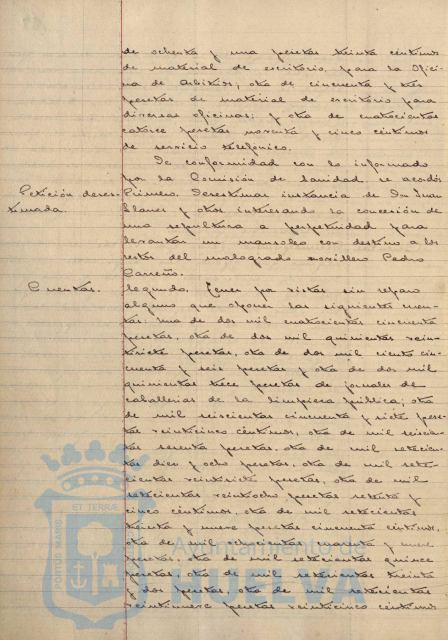 de ochenta y una pesetas treinta céntimos
de material de escritorio para la Ofici-
na de Arbitrios; otra de cincuenta y tres
pesetas de material de escritorio para
diversas oficinas; y otra de cuatrocientas
catorce pesetas noventa y cinco céntimos
de servicio telefónico.
De conformidad con lo informado
por la Comisión de Sanidad, se acordó
Petición deses-
timada.
Primero. Desestimar instancia de Don Juan
Llanes y otros, interesando la concesión de
una sepultura a perpetuidad para
levantar un mausoleo con destino a los
restos del malogrado novillero Pedro
Carreño.
Cuentas.
Segundo. Tener por vistas sin reparo
alguno que oponer las siguientes cuen-
tas: una de dos mil cuatrocientas cincuenta
pesetas, otra de dos mil quinientas vein-
tisiete pesetas, otra de dos mil ciento cin-
cuenta y seis pesetas y otra de dos mil
quinientas trece pesetas de jornales de
caballerías de la limpieza pública; otra
de mil seiscientas cincuenta y siete pese-
tas veinticinco céntimos, otra de mil seiscien-
tas sesenta pesetas, otra de mil setecien-
tas diez y ocho pesetas, otra de mil sete-
cientas veintisiete pesetas, otra de mil
setecientas veintiocho pesetas setenta y
cinco céntimos, otra de mil setecientas
treinta y nueve pesetas cincuenta céntimos,
otra de mil ochocientas noventa y nueve
pesetas, otra de mil setecientas quince
pesetas, otra de mil setecientas treinta
y dos pesetas, otra de mil setecientas
veintinueve pesetas veinticinco céntimos
PORTUS MARIS
ET TERRÆ
Ayuntamiento de
HUELVA